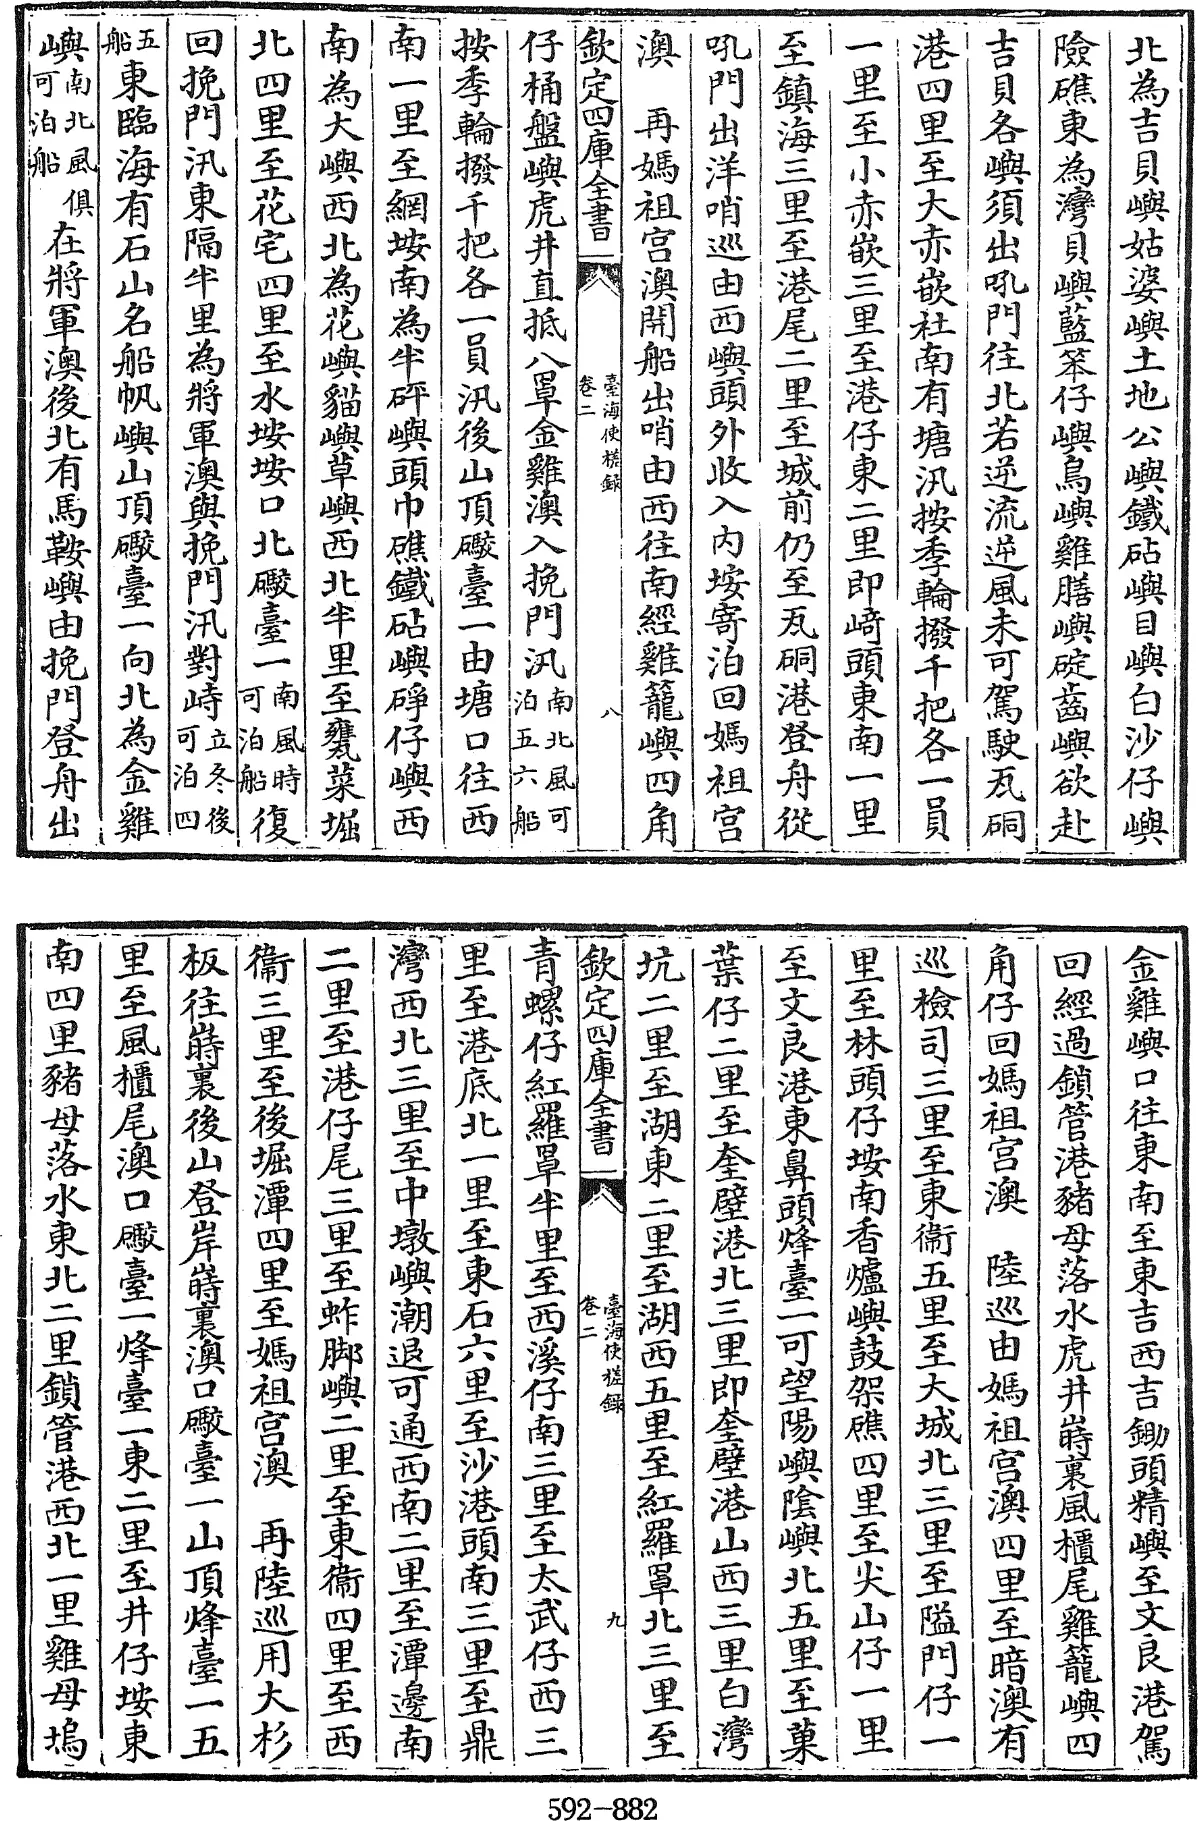 北為吉貝嶼姑婆嶼土地公嶼鐵砧嶼目嶼白沙仔嶼
險礁東為灣貝嶼藍笨仔嶼鳥嶼雞膳嶼碇齒嶼欲赴
吉貝各嶼須出吼門往北若逆流逆風未可駕駛瓦硐
港四里至大赤嵌社南有塘汛按季輪撥千把各一員
一里至小赤嵌三里至港仔東二里即﨑頭東南一里
至鎮海三里至港尾二里至城前仍至瓦硐港登舟從
吼門出洋哨巡由西嶼頭外收入内垵寄泊回媽祖宫
澳　再媽祖宫澳開船出哨由西往南經雞籠嶼四角
欽定四庫全書
臺海使槎録
卷二
八
仔桶盤嶼虎井直抵八罩金雞澳入挽門汛南北風可泊五六船
按季輪撥千把各一員汛後山頂礮臺一由塘口往西
南一里至網垵南為半砰嶼頭巾礁鐵砧嶼碀仔嶼西
南為大嶼西北為花嶼貓嶼草嶼西北半里至甕菜堀
北四里至花宅四里至水垵垵口北礮臺一南風時可泊船復
回挽門汛東隔半里為將軍澳與挽門汛對峙立冬後可泊四
五船東臨海有石山名船帆嶼山頂礮臺一向北為金雞
嶼南北風俱可泊船在將軍澳後北有馬鞍嶼由挽門登舟出
金雞嶼口往東南至東吉西吉鋤頭精嶼至文良港駕
回經過鎖管港豬母落水虎井嵵裏風櫃尾雞籠嶼四
角仔回媽祖宫澳　陸巡由媽祖宫澳四里至暗澳有
巡檢司三里至東衞五里至大城北三里至隘門仔一
里至林頭仔垵南香爐嶼鼓架礁四里至尖山仔一里
至文良港東鼻頭烽臺一可望陽嶼陰嶼北五里至菓
葉仔二里至奎壁港北三里即奎壁港山西三里白灣
坑二里至湖東二里至湖西五里至紅羅罩北三里至
欽定四庫全書
臺海使槎録
卷二
九
青螺仔紅羅罩半里至西溪仔南三里至太武仔西三
里至港底北一里至東石六里至沙港頭南三里至鼎
灣西北三里至中墩嶼潮退可通西南二里至潭邊南
二里至港仔尾三里至蚱脚嶼二里至東衞四里至西
衞三里至後堀潭四里至媽祖宫澳　再陸巡用大杉
板往嵵裏後山登岸嵵裏澳口礮臺一山頂烽臺一五
里至風櫃尾澳口礮臺一烽臺一東二里至井仔垵東
南四里豬母落水東北二里鎖管港西北一里雞母塢
592-882